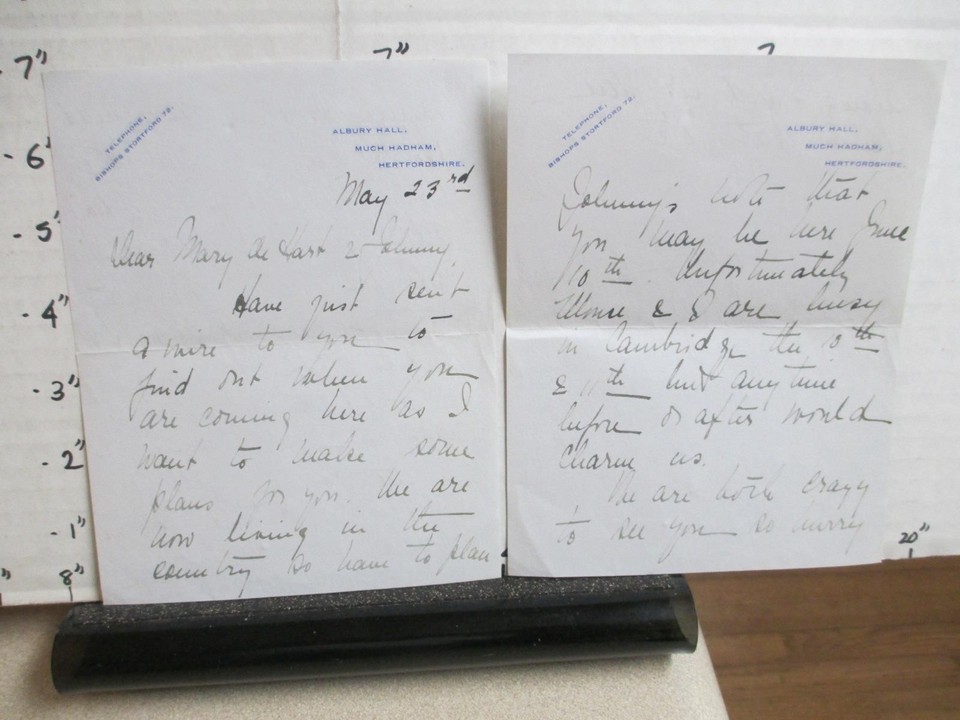 7"
6"
5"
4"
3"
2"
1"
8"
7"
20"
TELEPHONE,
BISHOPS STORTFORD 72.
ALBURY HALL,
MUCH HADHAM,
HERTFORDSHIRE.
May 23rd
Dear Mary de Hart & Johnny,
Have just sent
a wire to you to
find out when you
are coming here as I
want to make some
plans for you. We are
now living in the
country so have to plan
TELEPHONE,
BISHOPS STORTFORD 72.
ALBURY HALL,
MUCH HADHAM,
HERTFORDSHIRE.
Johnny's note that
you may be here June
10th. Unfortunately
& I are busy
in Cambridge the 10th
& 11th but anytime
before or after would
charm us.
We are both crazy
to see you so hurry